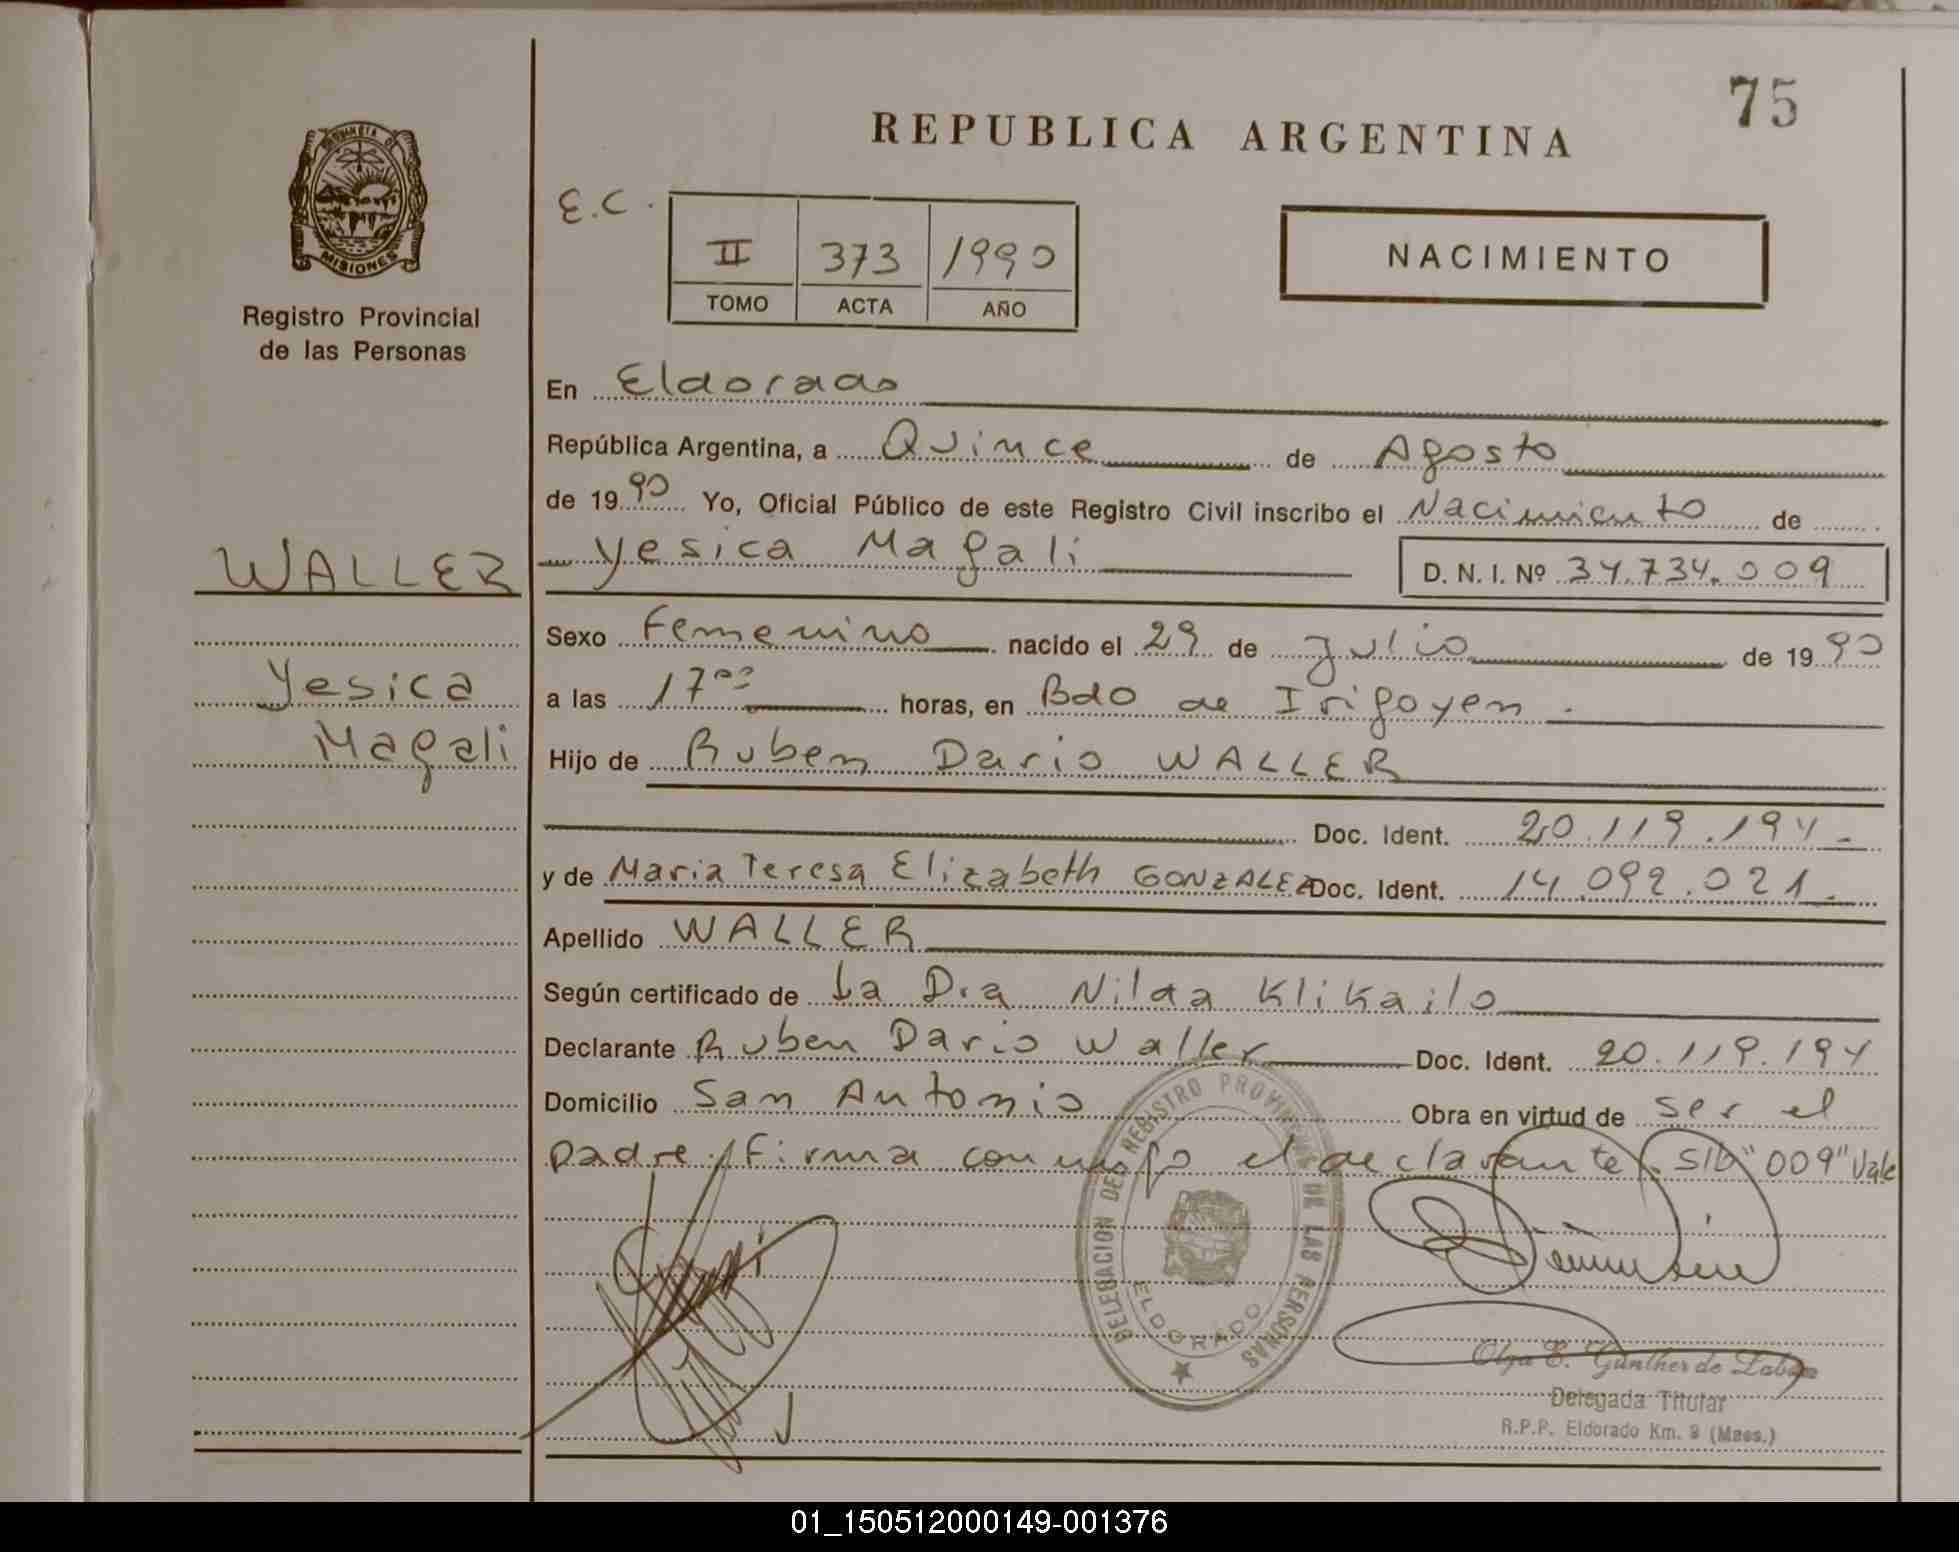 75
REPUBLICA ARGENTINA
PROVINCIA DE
MISIONES
Registro Provincial
de las Personas
E.C.
II 373 1990
TOMO ACTA AÑO
NACIMIENTO
En Eldorado
República Argentina, a Quince de Agosto
de 1990 Yo, Oficial Público de este Registro Civil inscribo el Nacimiento de
WALLER
Yesica Magali D. N. I. Nº 34.734.009
Sexo Femenino nacido el 29 de Julio de 1990
Yesica
a las 17°° horas, en Bdo de Irigoyen.
Magali
Hijo de Ruben Dario WALLER
Doc. Ident. 20.119.194-
y de Maria Teresa Elizabeth GONZALEZ Doc. Ident. 14.092.021-
Apellido WALLER
Según certificado de La Dra Nilda Klikailo
Declarante Ruben Dario Waller Doc. Ident. 20.119.194
Domicilio San Antonio Obra en virtud de ser el
padre, firma conmigo el declarante. S/b "009" Vale
DELEGACION DEL REGISTRO PROVINCIAL DE LAS PERSONAS
ELDORADO
Olga E. Günther de
Delegada Titular
R.P.P. Eldorado Km. 9 (Mnes.)
01_150512000149-001376